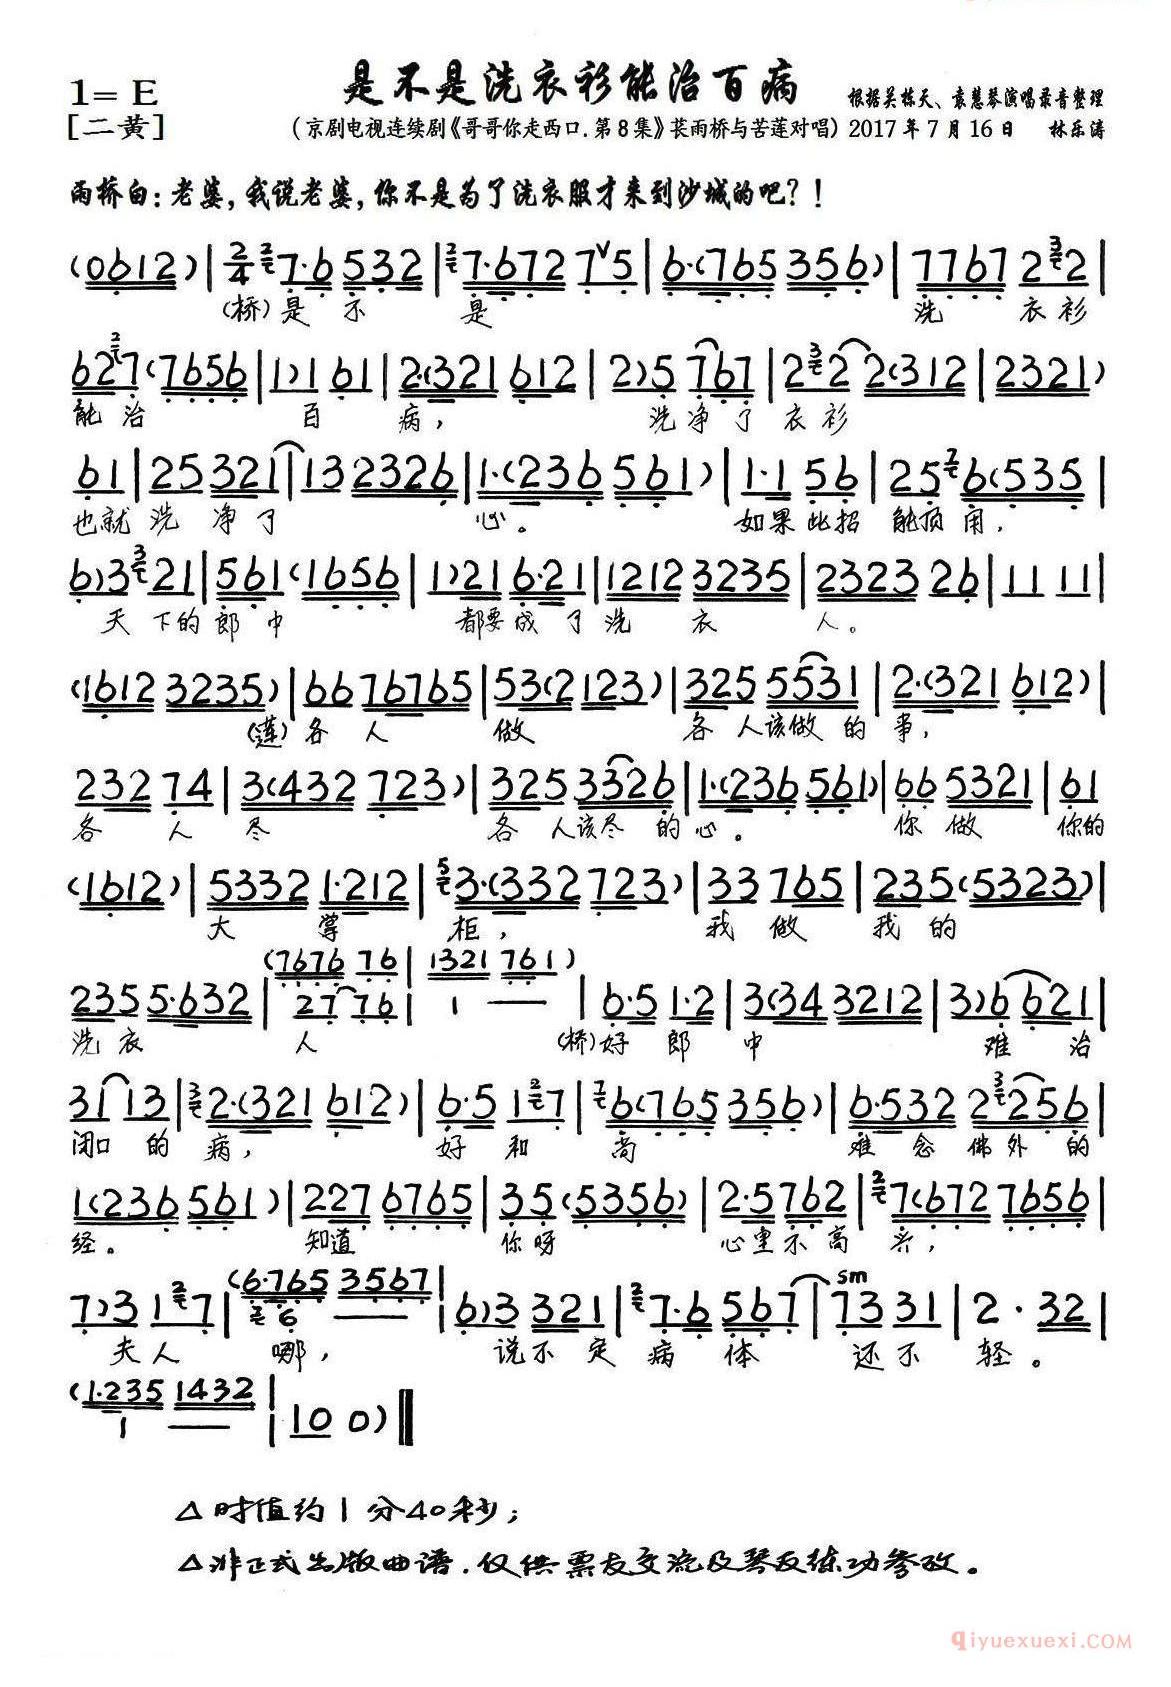 是不是洗衣衫能治百病
1=E
[二黄]
根据关栋天、袁慧琴演唱录音整理
(京剧电视连续剧《哥哥你走西口.第8集》苌雨桥与苦莲对唱) 2017年7月16日 林乐涛
雨桥白:老婆,我说老婆,你不是为了洗衣服才来到沙城的吧?!
(0612)|2/4 7·6 532|7·672 75|6·(765 356)|7767 22|
(桥)是不是洗衣衫
627(7656|1)1 61|2·(321 612|2)5 767|22 2(312|2321)
能治百病,洗净了衣衫
61|25 321|13 2326|1·(236 561)|1·1 56|25 6(535|
也就洗净了心。如果此招能顶用,
6)3 21|561(1656|1)21 6·21|1212 3235|2323 26|11 11|
天下的郎中都要成了洗衣人。
(1612 3235)|66 76765|53(2123)|325 5531|2·(321 612)|
(莲)各人做各人该做的事,
232 74|3(432 723)|325 3326|1·(236 561)|66 5321|61
各人尽各人该尽的心。你做你的
(1612)|5332 1·212|3·(332 723)|33 765|235(5323)|
大掌柜,我做我的
(7676 76|1321 761)
235 5·632|27 76|1 —|6·5 1·2|3(34 3212|3)6 621|
洗衣人(桥)好郎中难治
31 13|2·(321 612)|6·5 17|6(765 356)|6·532 2256|
闭口的病,好和尚难念佛外的
1(236 561)|227 6765|35(5356)|2·5762|7(672 7656|
经。知道你呀心里不高兴,
(6·765 3567|
7)3 17|6 —|6)3 321|7·6 567|733 31|2·32|
夫人哪,说不定病体还不轻。
sm
(1·235 1432|
1 —|10 0)‖
△时值约1分40秒;
△非正式出版曲谱.仅供票友交流及琴友练功参改。
qiyuexuexi.COM